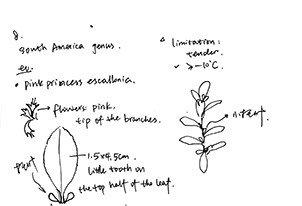 8.
South America genus.
eg.
• pink princess escallonia.
flowers: pink.
tip of the branches.
1.5×4.5cm
little tooth on
the top half of the leaf.
limitation:
tender.
✓ ≥-10°C.